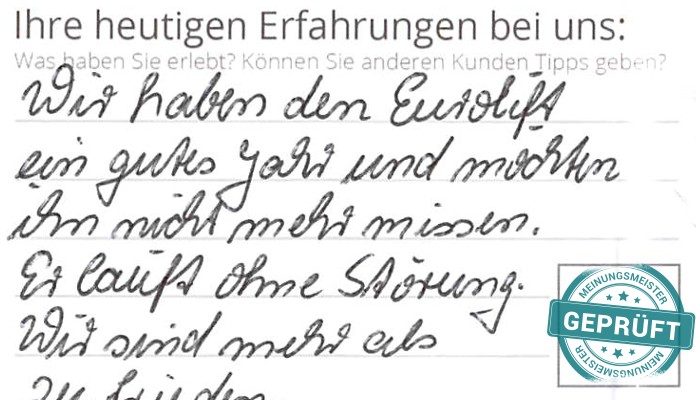 Ihre heutigen Erfahrungen bei uns:
Was haben Sie erlebt? Können Sie anderen Kunden Tipps geben?
Wir haben den Eurolift
ein gutes Jahr und möchten
ihn nicht mehr missen.
Er läuft ohne Störung.
Wir sind mehr als
zufrieden.
MEINUNGSMEISTER
GEPRÜFT
MEINUNGSMEISTER